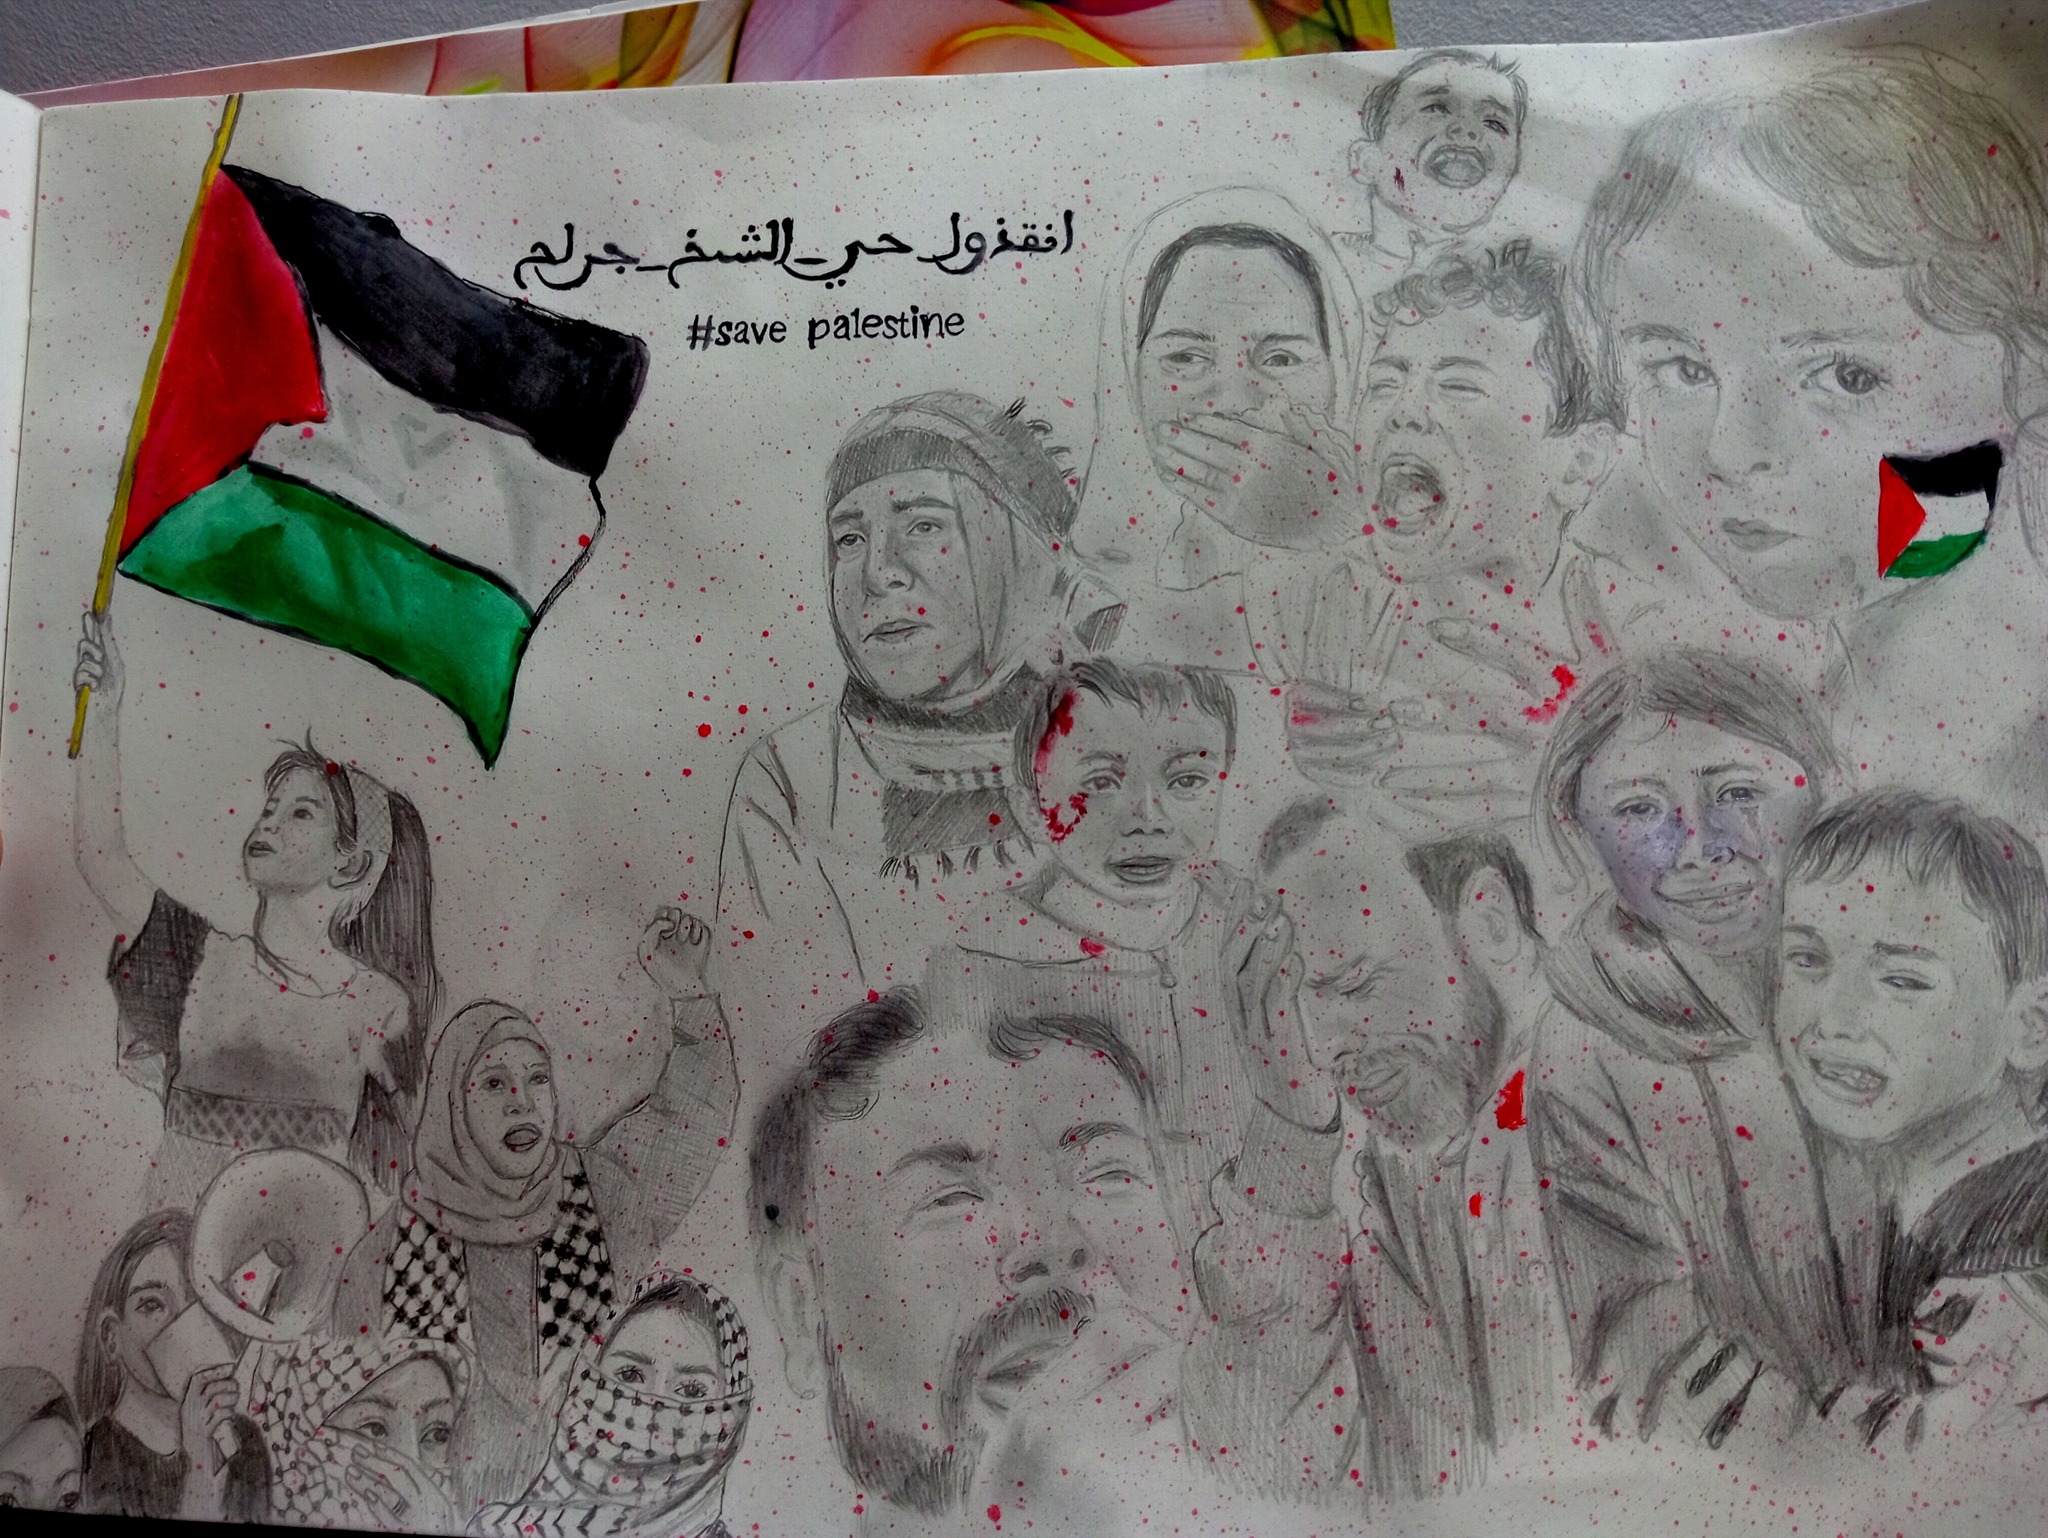 انقذوا_حي_الشيخ_جراح
#save palestine